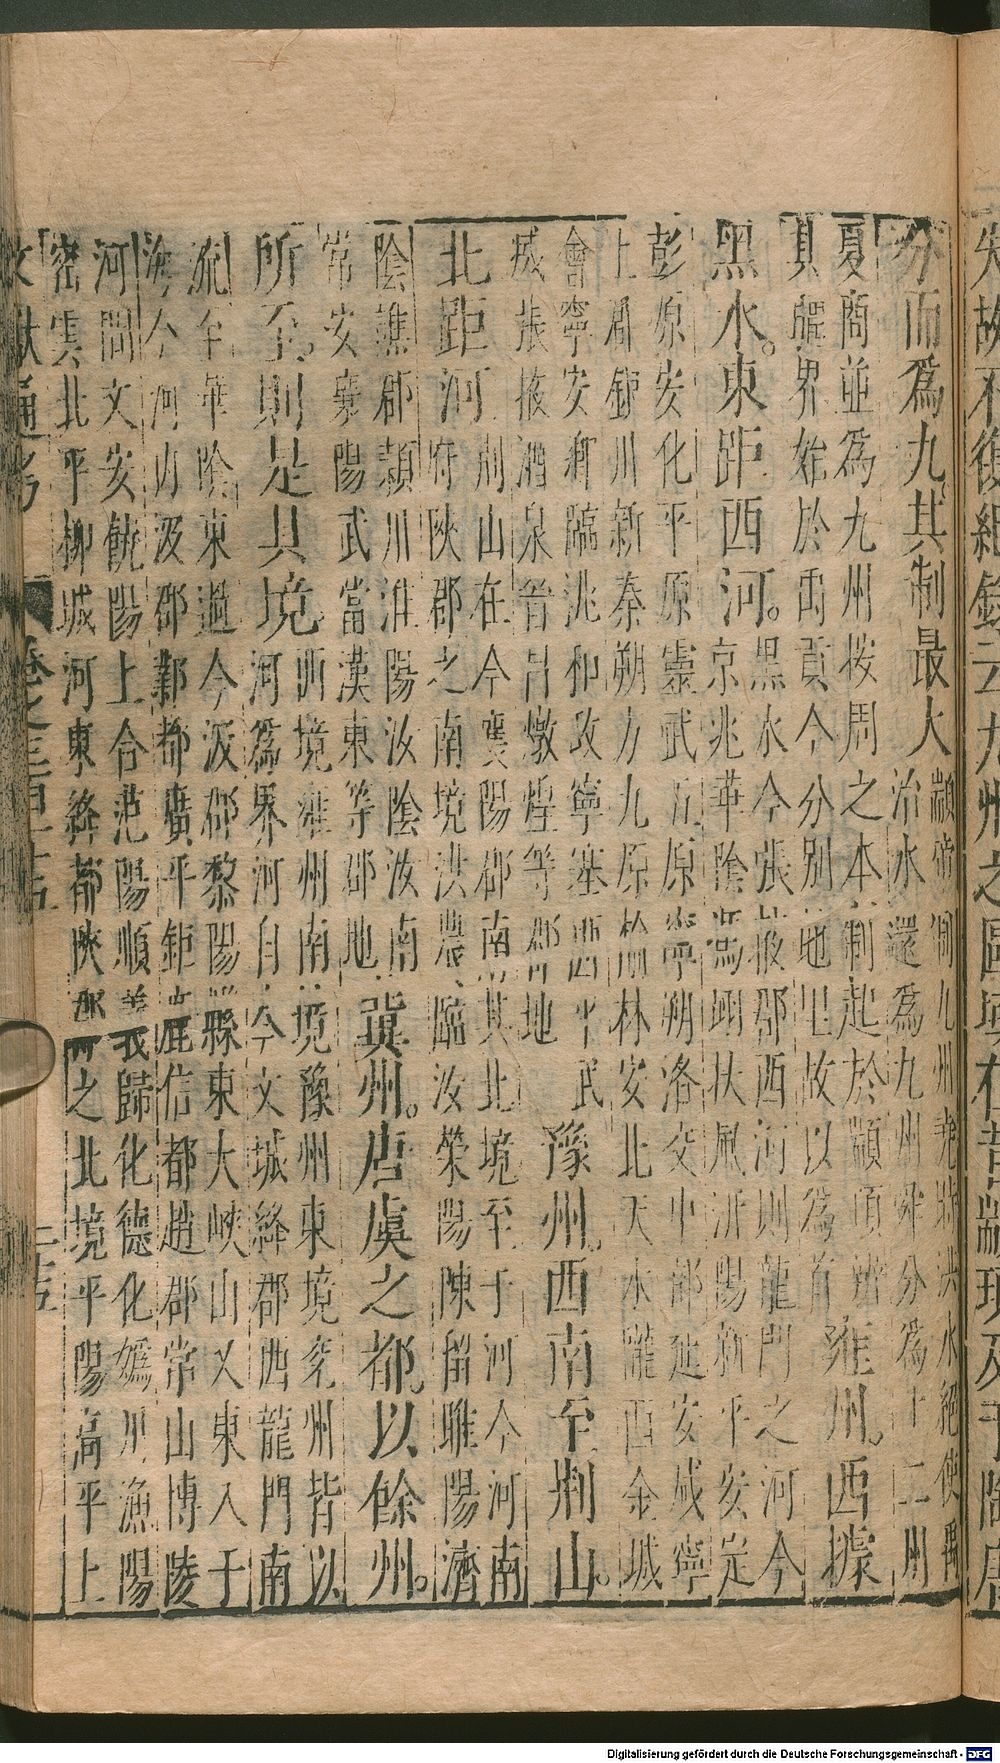 失故不復紀錄云九州之區域在昔顓頊及于陶唐
分而爲九其制最大
顓帝制九州堯時洪水絕使禹
治水還爲九州舜分爲十二州
夏商並爲九州按周之本制起於顓頊辨
其疆界始於禹貢今分別地里故以爲首
雍州。西據
黑水。東距西河。
黑水今張掖郡西河則龍門之河今
京兆華陰馮翊扶風汧陽新平安定
彭原安化平原靈武五原寧朔洛交中部延安咸寧
上郡銀川新秦朔方九原榆林安北天水隴西金城
會寧安鄉臨洮和政寧塞西平武
威張掖酒泉晉昌燉煌等郡地
豫州。西南至荆山。
北距河
荆山在今襄陽郡南其北境至于河今河南
府陝郡之南境洪農臨汝滎陽陳留睢陽濟
陰譙郡潁川淮陽汝陰汝南
常安襄陽武當漢東等郡地
冀州。唐虞之都。以餘州。
所至。則是其境
西境雍州南境豫州東境兗州皆以
河爲界河自今文城絳郡西龍門南
流至華陰東過今汲郡黎陽縣東大峽山又東入于
海今河内汲郡鄴郡廣平鉅鹿信都趙郡常山博陵
河間文安饒陽上谷范陽順義歸化德化嬀川漁陽
密雲北平柳城河東絳郡陝郡之北境平陽高平上
文獻通考 卷之三百十五
Digitalisierung gefördert durch die Deutsche Forschungsgemeinschaft - DFG